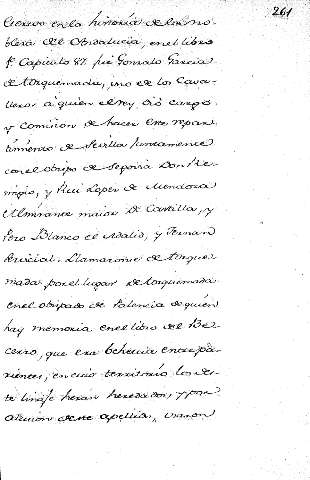 261
en la historia de la no-
bleza del Andalucia, en el libro
Capitulo 87. fue Gonzalo Garcia
de Torquemada, uno de los Cava-
lleros à quien el rey dió cargo,
y comision de hacer este repar-
timiento de Sevilla juntamente
con el obispo de Segovia Don Re-
migio, y Rui Lopez de Mendoza
Almirante maior de Castilla, y
Pero Blanco el Adalid, y Fernan
Llamaronse de Torque-
mada por el lugar de torquemada
en el obispado de Palencia de quien
hay memoria en el libro del Be-
cerro, que era behetria entre pa-
rientes, en cuio territorio los des-
te linaje heran heredados, y por
alusion deste apellido, usaron